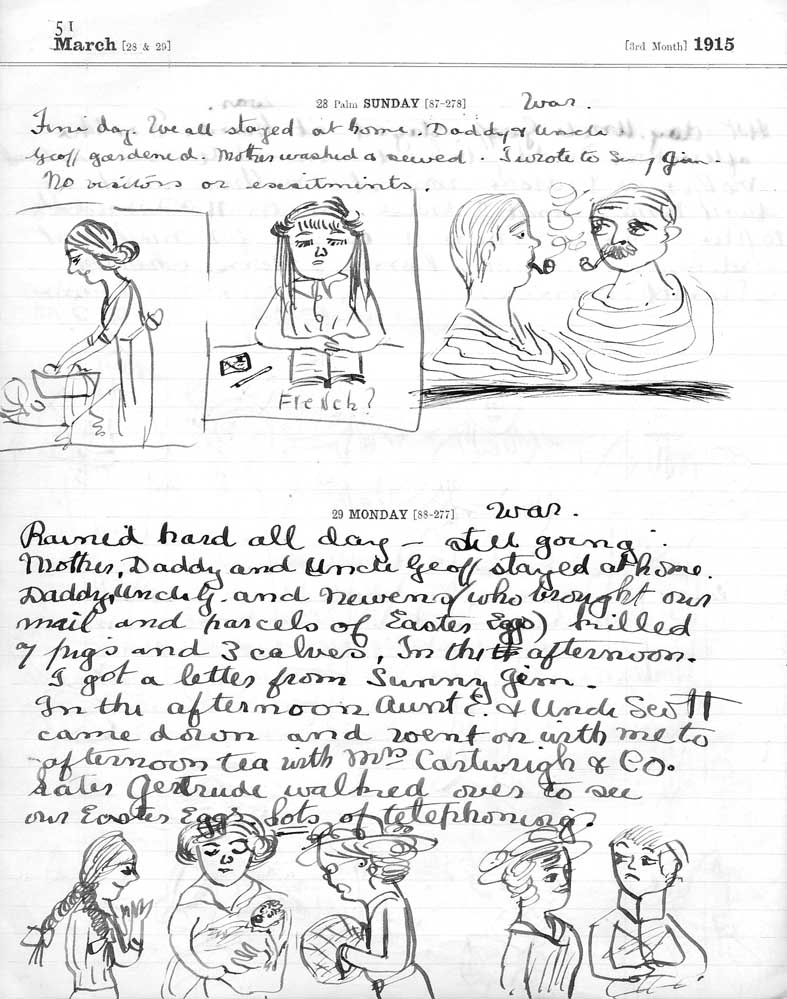 51
March [28 & 29] [3rd Month] 1915
28 Palm SUNDAY [87-278] War.
Fine day. We all stayed at home. Daddy & Uncle
Geoff gardened. Mother washed & sewed. I wrote to Sunny Jim.
No visitors or exscitments.
French?
29 MONDAY [88-277] War.
Rained hard all day – still going.
Mother, Daddy and Uncle Geoff stayed at home.
Daddy, Uncle G. and Newens (who brought our
mail and parcels of Easter Eggs) killed
7 pigs and 3 calves, In the afternoon.
I got a letter from Sunny Jim.
In the afternoon Aunt E. & Uncle Scott
came down and went on with me to
afternoon tea with Mrs Cartwright & Co.
Later Gertrude walked over to see
our Easter Eggs. Lots of telephoning.